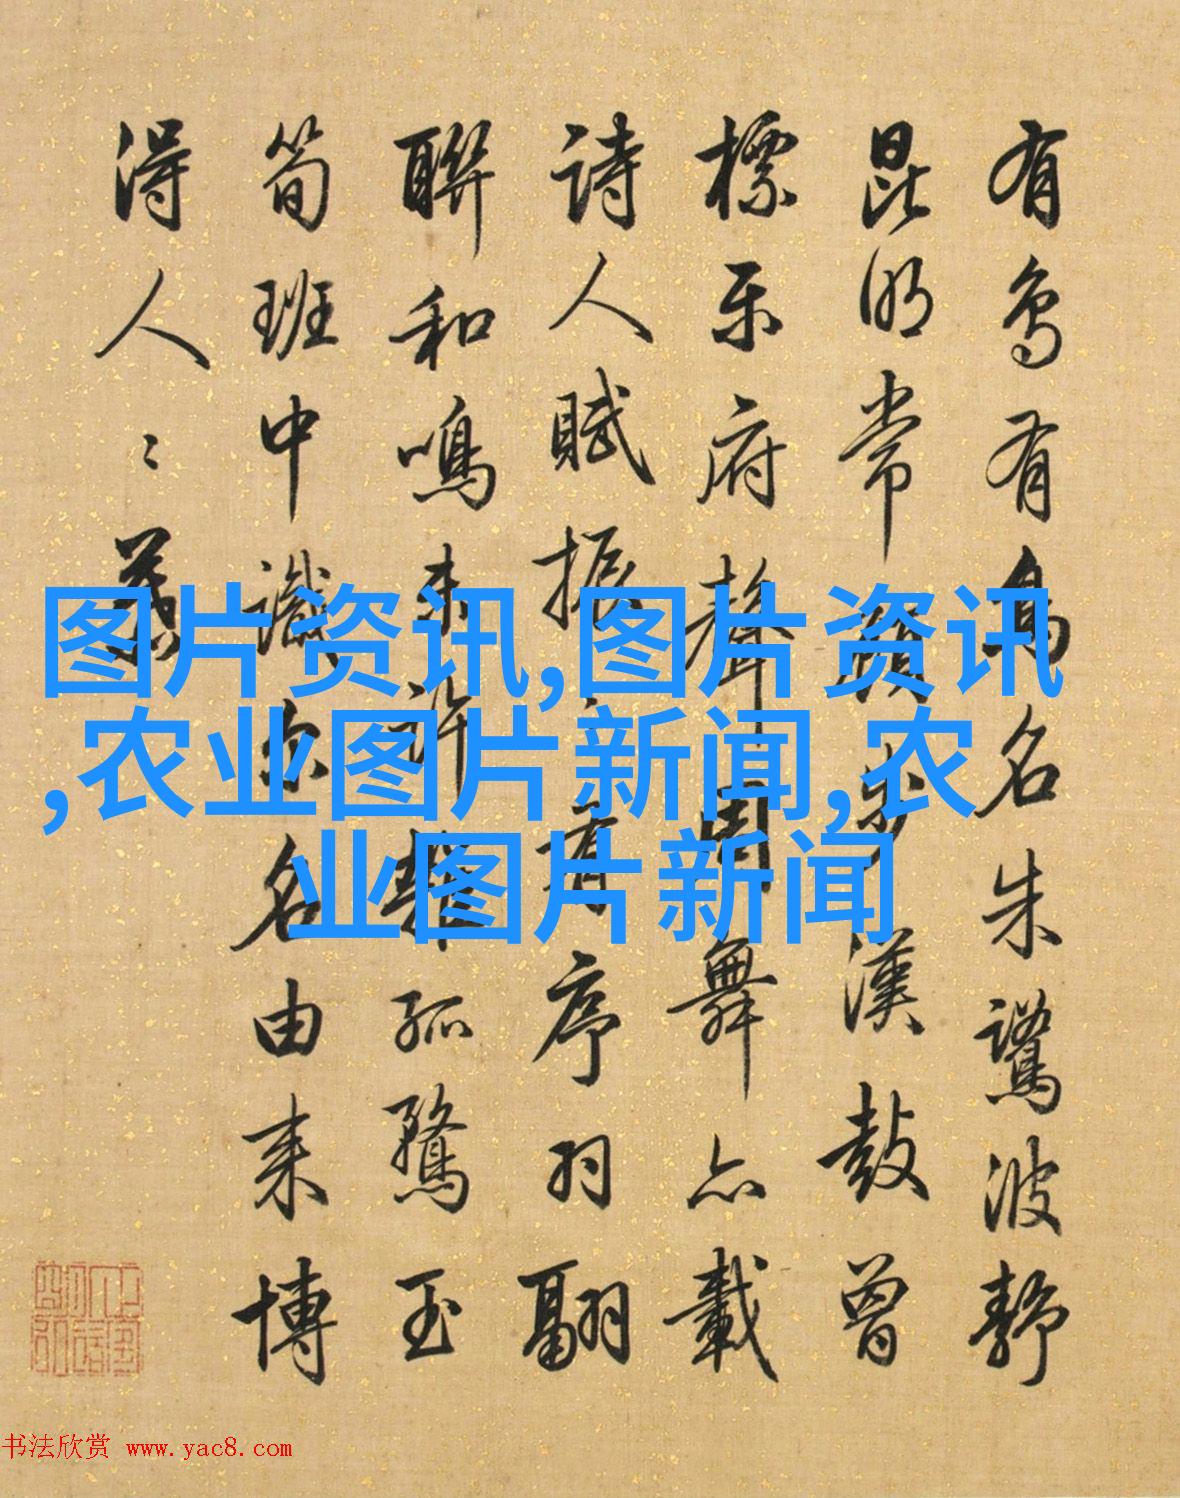 有鸟有鸟名朱鹭波静
昆明常 漢鼓曾
標乐府聲 舞亦載
诗人賦振 有序羽翩
聯和鳴来许 孤鶩玉
筍班中識尔名由来博
得人〻羡
图片资讯,图片资讯
,农业图片新闻,农
业图片新闻
书法欣赏 www.yac8.com